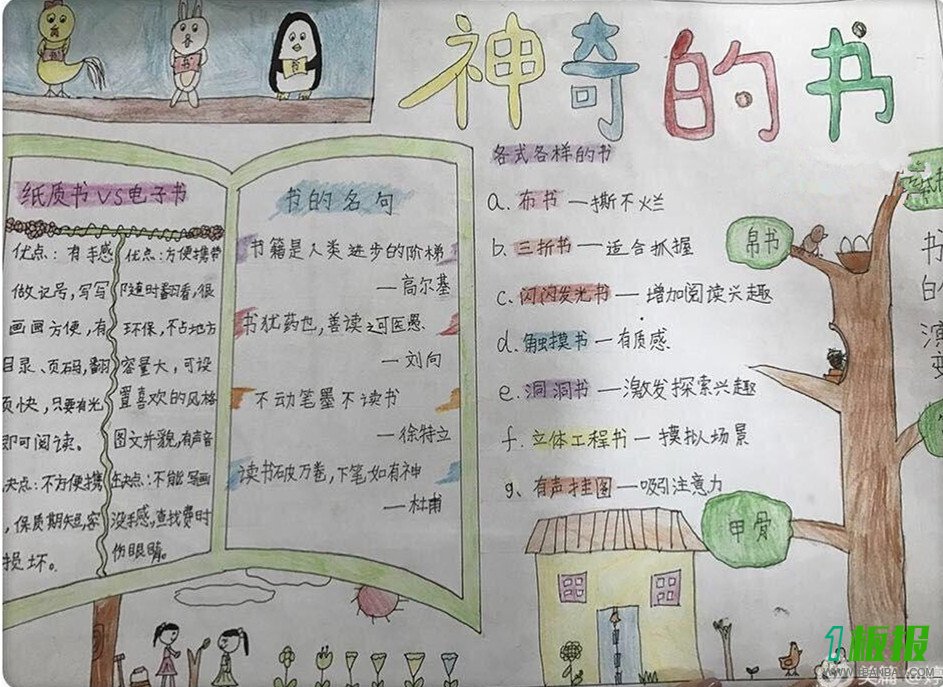 神奇的书
纸质书VS电子书
优点:有手感
做记号,写写
画画方便,有
目录、页码,翻
页快,只要有光
即可阅读。
缺点:不方便携
,保质期短,容
损坏。
优点:方便携带
随时翻看,很
环保,不占地方
容量大,可设
置喜欢的风格
图文并貌,有声音
缺点:不能写画
没手感,查找费时
伤眼睛。
书的名句
书籍是人类进步的阶梯
—高尔基
书犹药也,善读之可医愚.
—刘向
不动笔墨不读书
—徐特立
读书破万卷,下笔如有神
—杜甫
各式各样的书
a.布书—撕不烂
b.三折书—适合抓握
c.闪闪发光书—增加阅读兴趣
d.触摸书—有质感
e.洞洞书—激发探索兴趣
f.立体工程书—摸拟场景
g、有声挂图—吸引注意力
帛书
甲骨
书
的
演
变
1板报